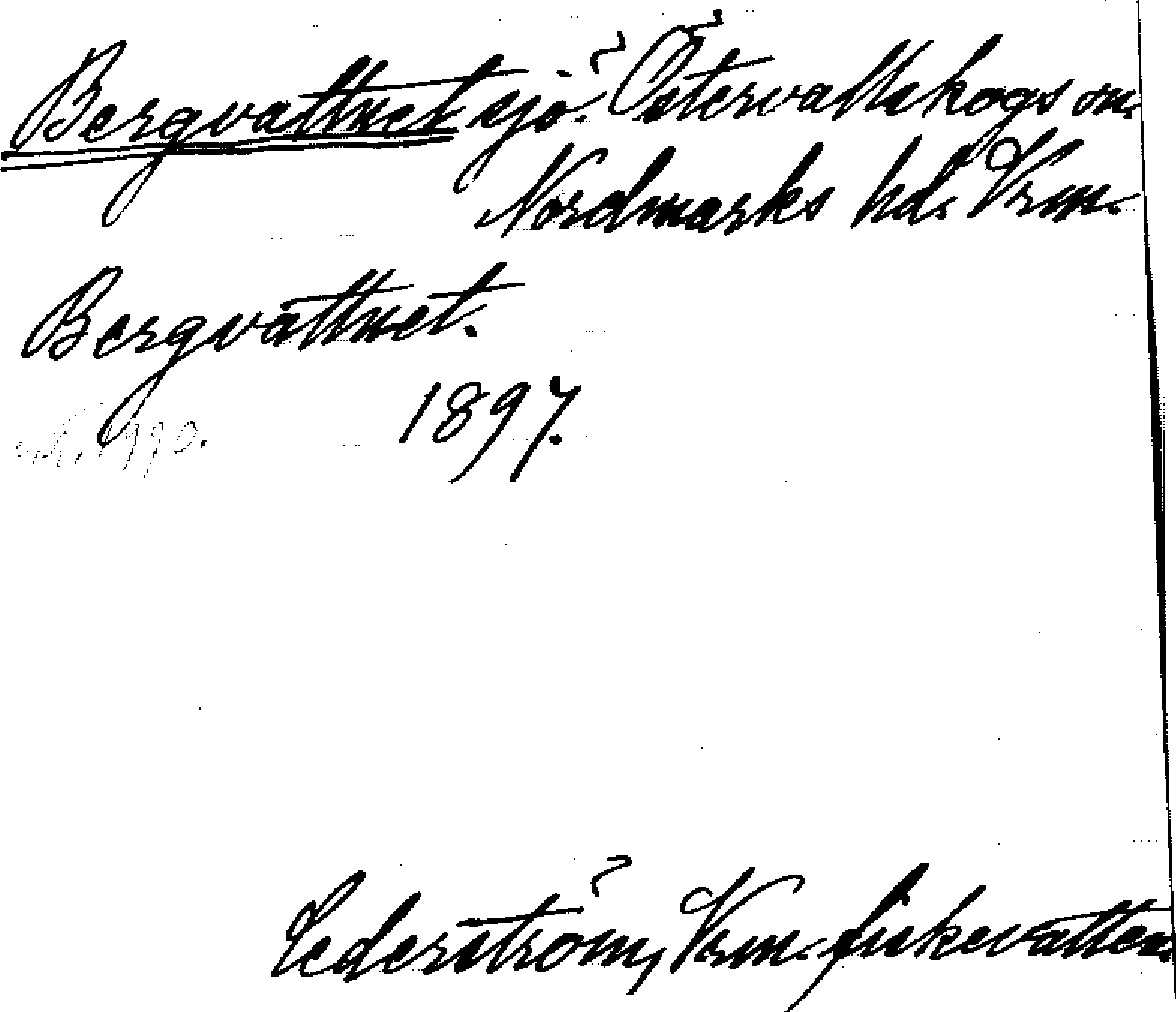 Bergvattnet sjö. Östervallskogs sn.
Nordmarks hd. Vrm.
Bergvattnet.
1897.
Cederström, Vrm. fiskevatten.